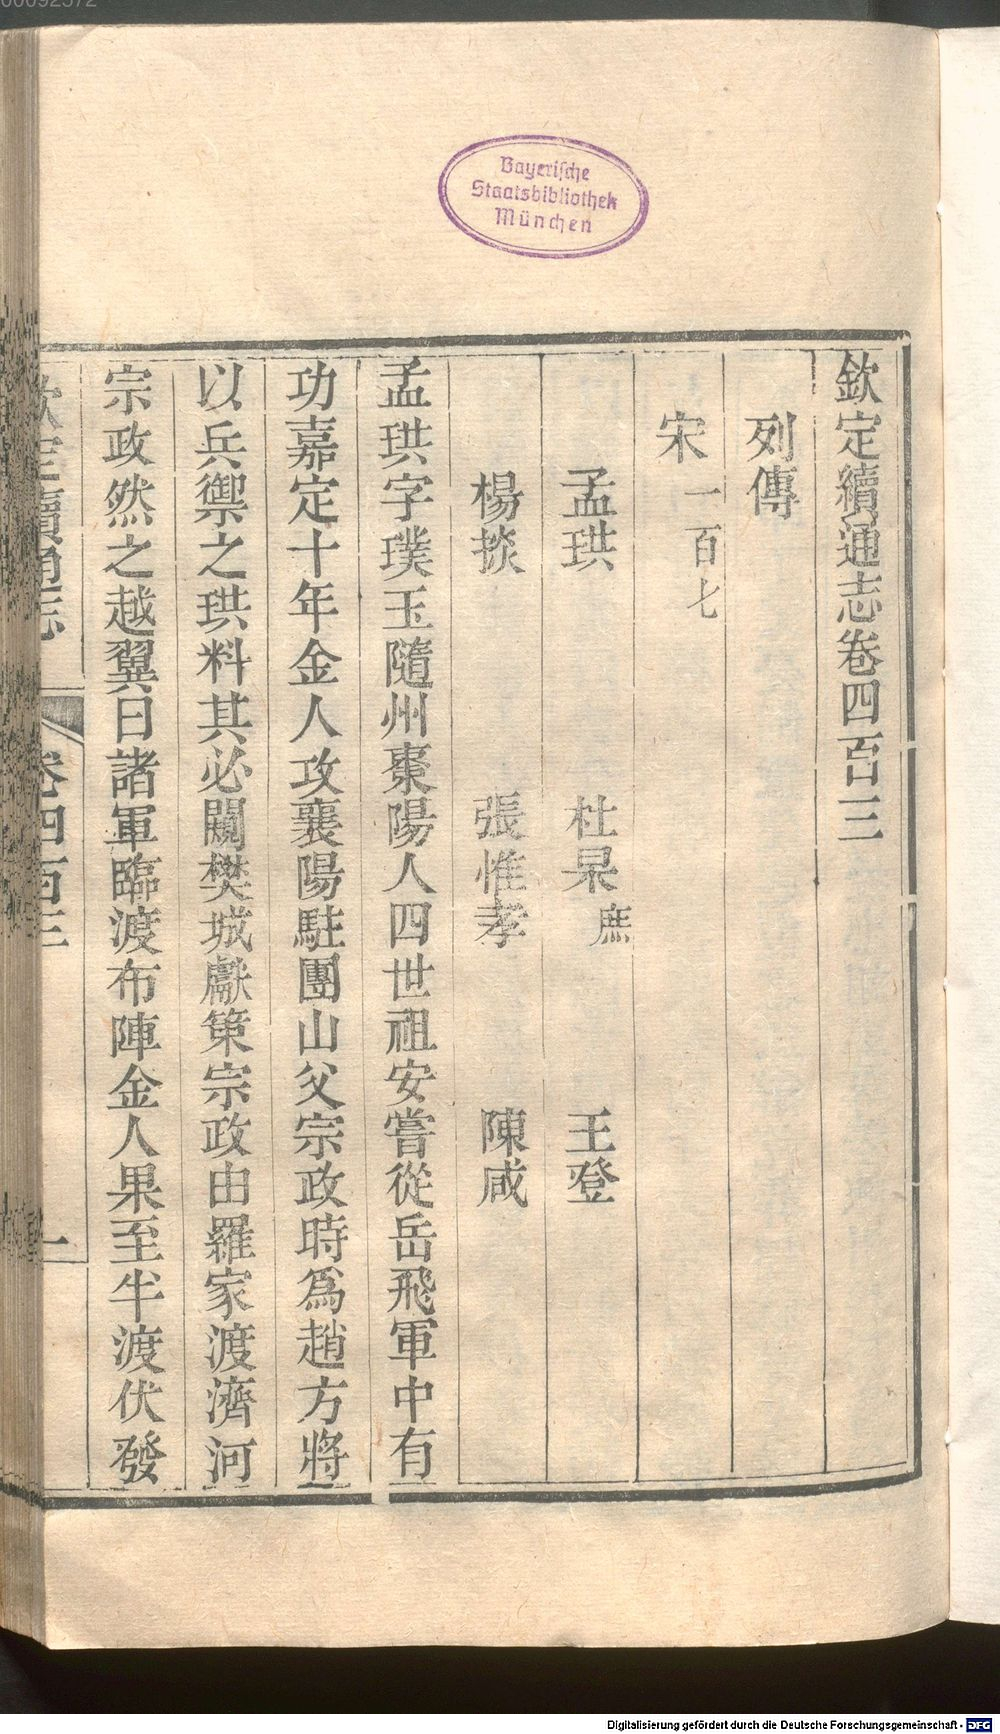 00092572
Bayerische
Staatsbibliothek
München
欽定續通志卷四百三
列傳
宋一百七
孟珙 杜杲庶 王登
楊掞 張惟孝 陳咸
孟珙字璞玉隨州棗陽人四世祖安嘗從岳飛軍中有
功嘉定十年金人攻襄陽駐團山父宗政時爲趙方將
以兵禦之珙料其必闚樊城獻策宗政由羅家渡濟河
宗政然之越翼日諸軍臨渡布陣金人果至半渡伏發
欽定續通志 卷四百三 一
Digitalisierung gefördert durch die Deutsche Forschungsgemeinschaft - DFG